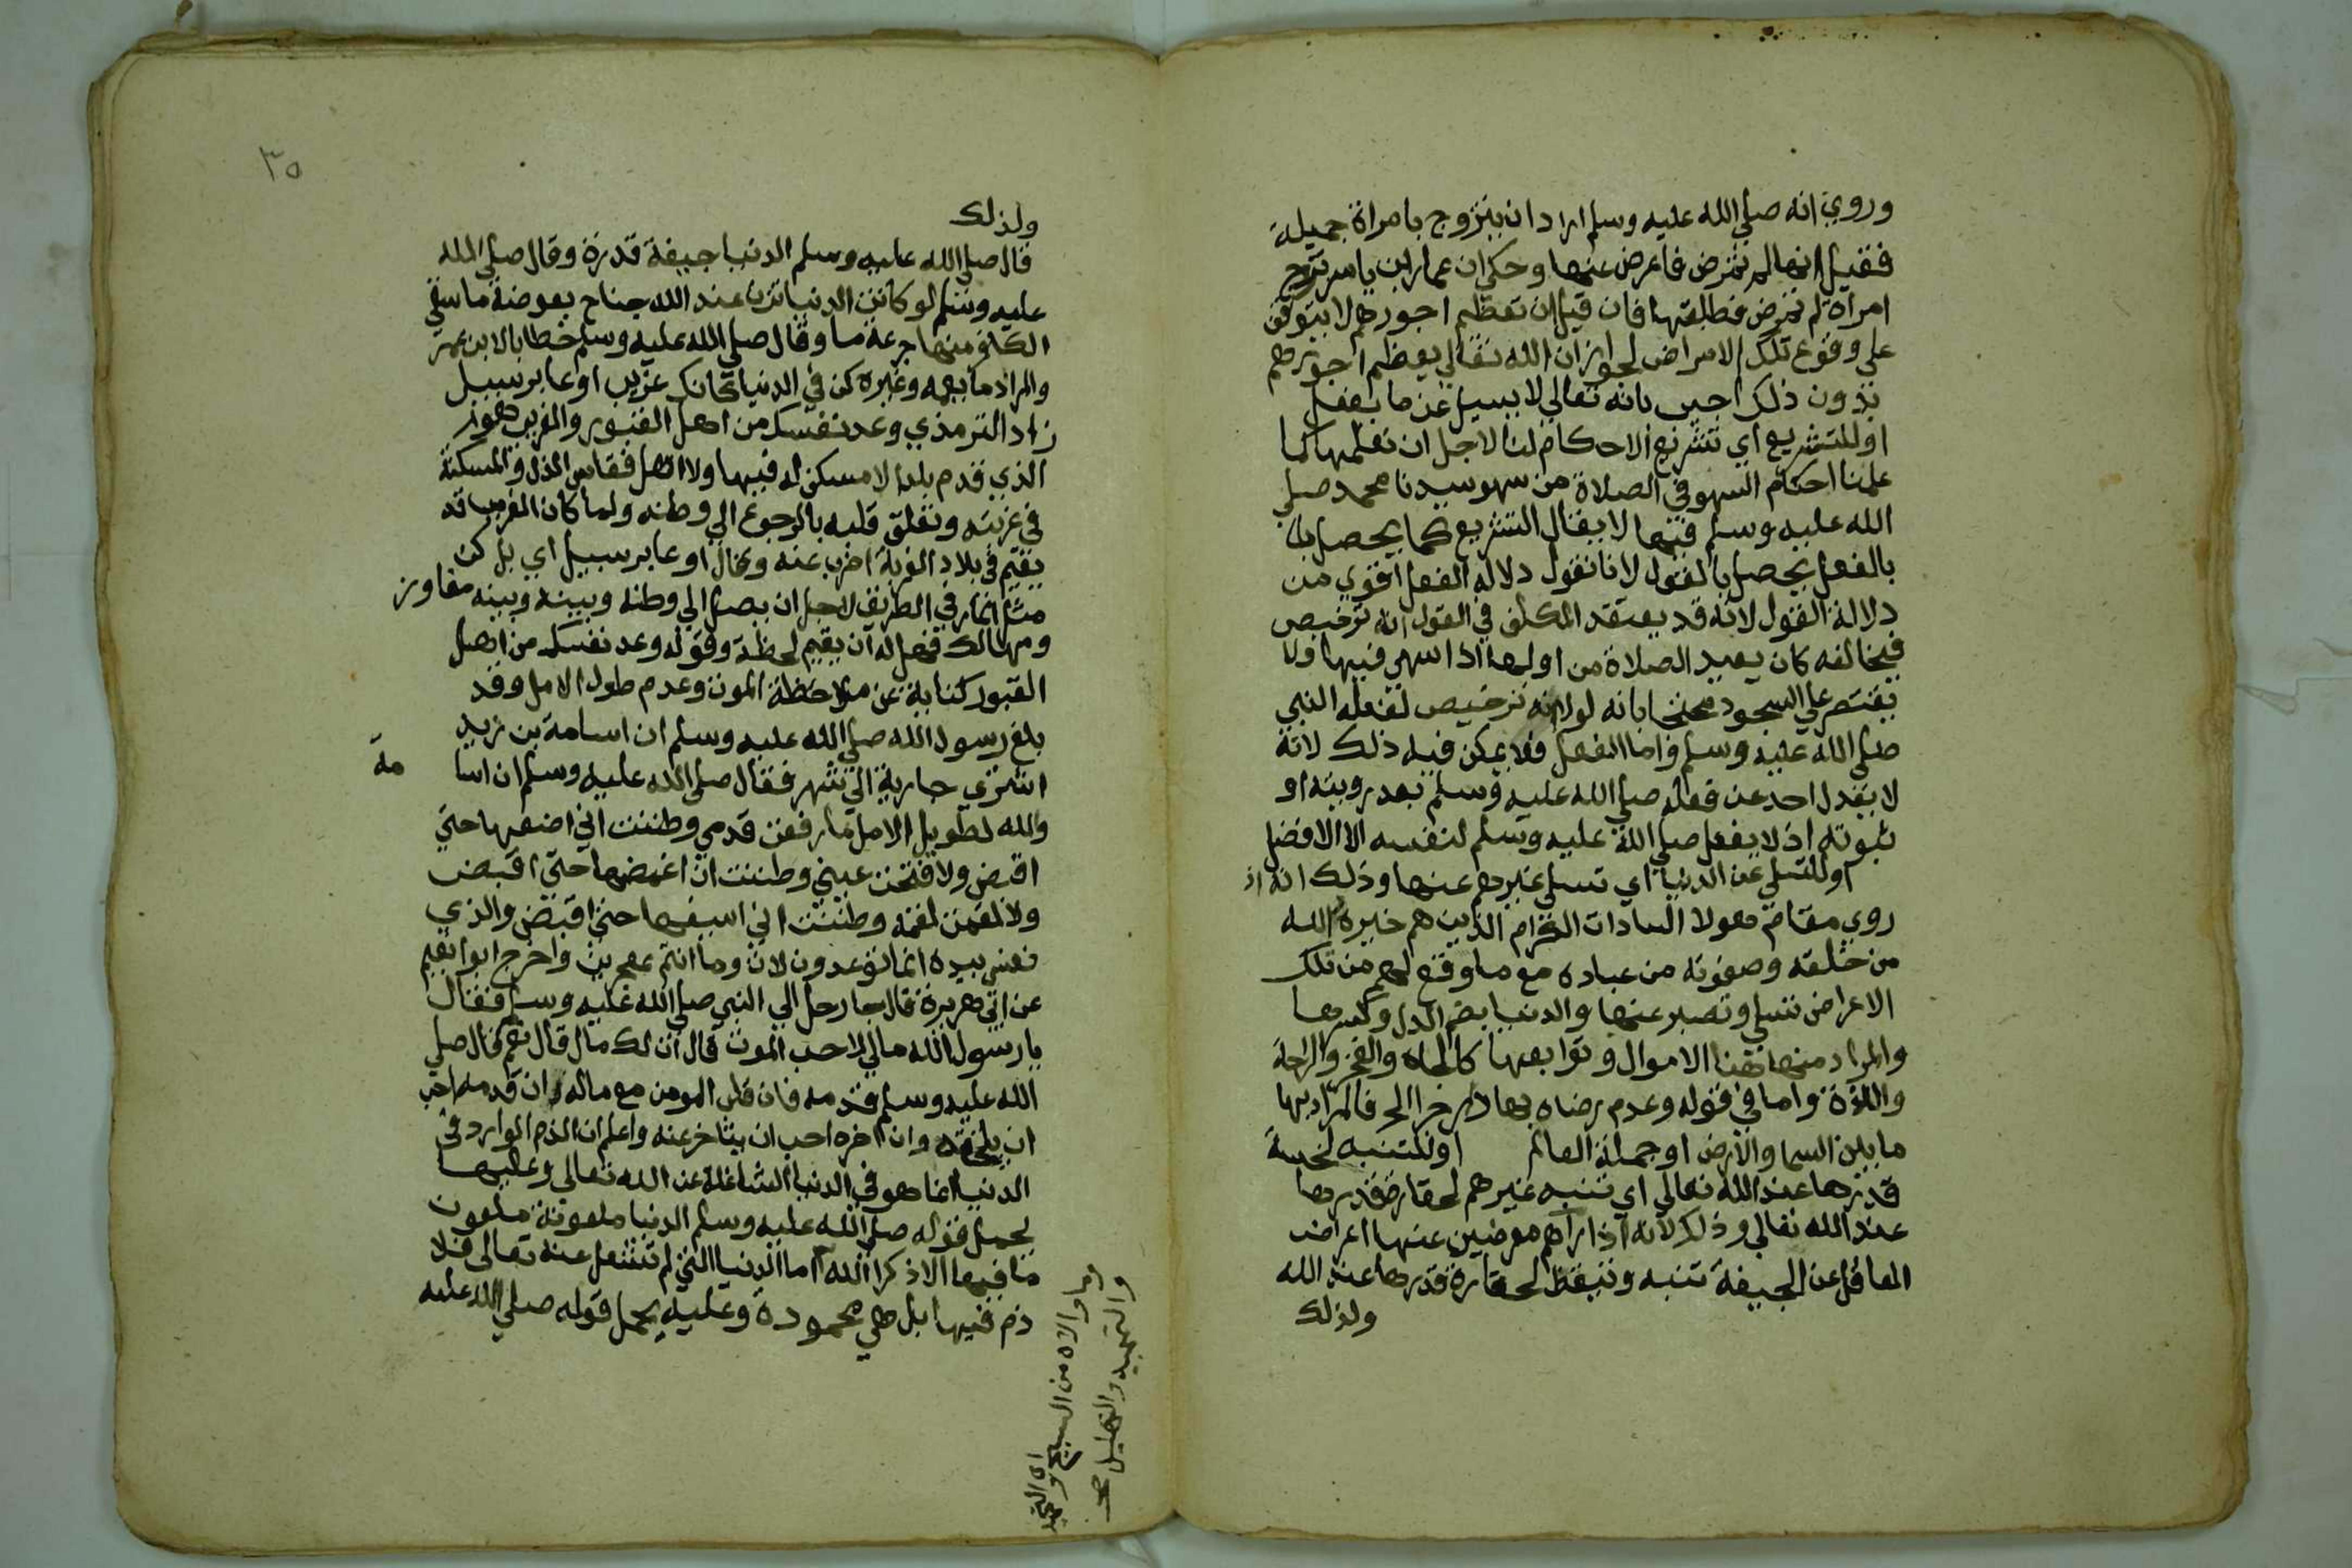 وروي انه صلي الله عليه وسلم اراد ان يتزوج بامراة جميلة
فقيل انها لم تمرض فاعرض عنها وحكي ان عمار ابن ياسر تزوج
امراة لم تمرض فطلقها فان قيل ان تعظيم اجورهم لا يتوقف
علي وقوع تلك الامراض لجواز ان الله تعالي يعظم اجورهم
بدون ذلك اجيب بانه تعالي لا يسيل عن ما يفعل
او للتشريع اي تشريع الاحكام لنا لاجل ان نعلمها كما
علمنا احكام السهو في الصلاة من سهو سيدنا محمد صلي
الله عليه وسلم فيها لا يقال التشريع كما يحصل لنا
بالفعل يحصل بالقول لانا نقول دلالة الفعل اقوي من
دلالة القول لانه قد يعتقد المكلف في القول انه ترخيص
فيخالفه كان يعيد الصلاة من اولها اذا سهي فيها ولا
يقتصر علي السجود محتجا بانه لولا انه ترخيص لفعله النبي
صلي الله عليه وسلم واما الفعل فلا يمكن فيه ذلك لانه
لا يعدل احد عن فعله صلي الله عليه وسلم بعد رويته او
ثبوته اذ لا يفعل صلي الله عليه وسلم لنفسه الا الافضل
او للتسلي عن الدنيا اي تسلي غيرهم عنها وذلك انه اذ
روي مقام هولا السادات الكرام الذين هم خيرة الله
من خلقه وصفوته من عباده مع ما وقع لهم من تلك
الاعراض تسلي وتصبر عنها والدنيا بضم الدال وكسرها
والمراد منها هنا الاموال وتوابعها كالجاه والفخر والراحة
واللذة واما في قوله وعدم رضاه بها دار جزا الخ فالمراد بها
ما بين السما والارض او جملة العالم او للتنبه لخسة
قدرها عند الله تعالي اي تنبه غيرهم لحقارة قدرها
عند الله تعالي وذلك لانه اذا راهم معرضين عنها اعراض
العاقل عن الجيفة تنبه وتيقظ لحقارة قدرها عند الله
ولذلك
٣٥
ولذلك
قال صلي الله عليه وسلم الدنيا جيفة قدرة وقال صلي الله
عليه وسلم لو كانت الدنيا تزن عند الله جناح بعوضة ما سقي
الكافر منها جرعة ما وقال صلي الله عليه وسلم خطابا لابن عمر
والمراد ما يعمه وغيره كن في الدنيا كانك غريب او عابر سبيل
زاد الترمذي وعد نفسك من اهل القبور والغريب هو
الذي قدم بلدا لا مسكن له فيها ولا اهل فقاسي الذل والمسكنة
في غربته وتعلق قلبه بالرجوع الي وطنه ولما كان الغريب قد
يقيم في بلاد الغربة اضرب عنه وقال او عابر سبيل اي بل كن
مثل المار في الطريق لاجل ان يصل الي وطنه وبينه وبينه مفاوز
ومهالك فهل له ان يقيم لحظة وقوله وعد نفسك من اهل
القبور كناية عن ملاحظة الموت وعدم طول الامل وقد
بلغ رسول الله صلي الله عليه وسلم ان اسامة بن زيد
اشتري جارية الي شهر فقال صلي الله عليه وسلم ان اسا مة
والله لطويل الامل ما رفعت قدمي وظننت اني اضعها حتي
اقبض ولا فتحت عيني وظننت ان اغمضها حتي اقبض
ولا لقمت لقمة وظننت اني اسيغها حتي اقبض والذي
نفسي بيده انما توعدون لات وما انتم بمعجزين واخرج ابو نعيم
عن ابي هريرة قال جا رجل الي النبي صلي الله عليه وسلم فقال
يا رسول الله مالي لا احب الموت قال الك مال قال نعم قال صلي
الله عليه وسلم قدمه فان قلب المومن مع ماله ان قدمه احب
ان يلحقه وان اخره احب ان يتاخر عنه واعلم ان الذم الوارد في
الدنيا انما هو في الدنيا الشاغلة عن الله تعالي وعليها
يحمل قوله صلي الله عليه وسلم الدنيا ملعونة ملعون
ما فيها الا ذكر الله اما الدنيا التي لم تشغل عنه تعالي فلا
ذم فيها بل هي محمودة وعليه يحمل قوله صلي الله عليه
وما والاه من التسبيح والتحميد
والتمجيد والتهليل صح